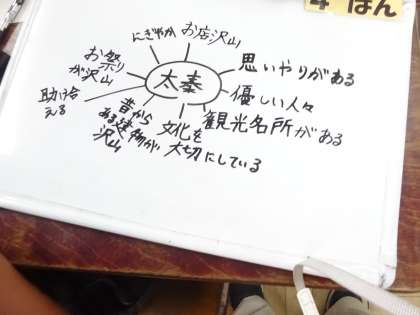 4 はん
にぎやか
お店沢山
お祭り
が沢山
太秦
思いやりがある
優しい人々
観光名所がある
助け合
える
昔から
ある建物が
沢山
文化を
大切にしている